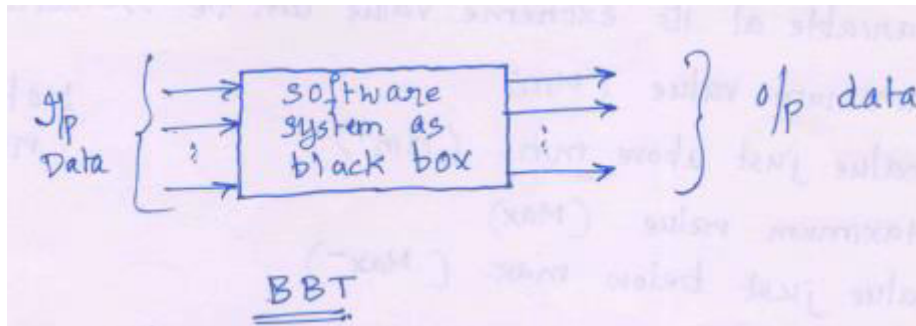 I/p
Data
software
system as
black box
o/p data
BBT